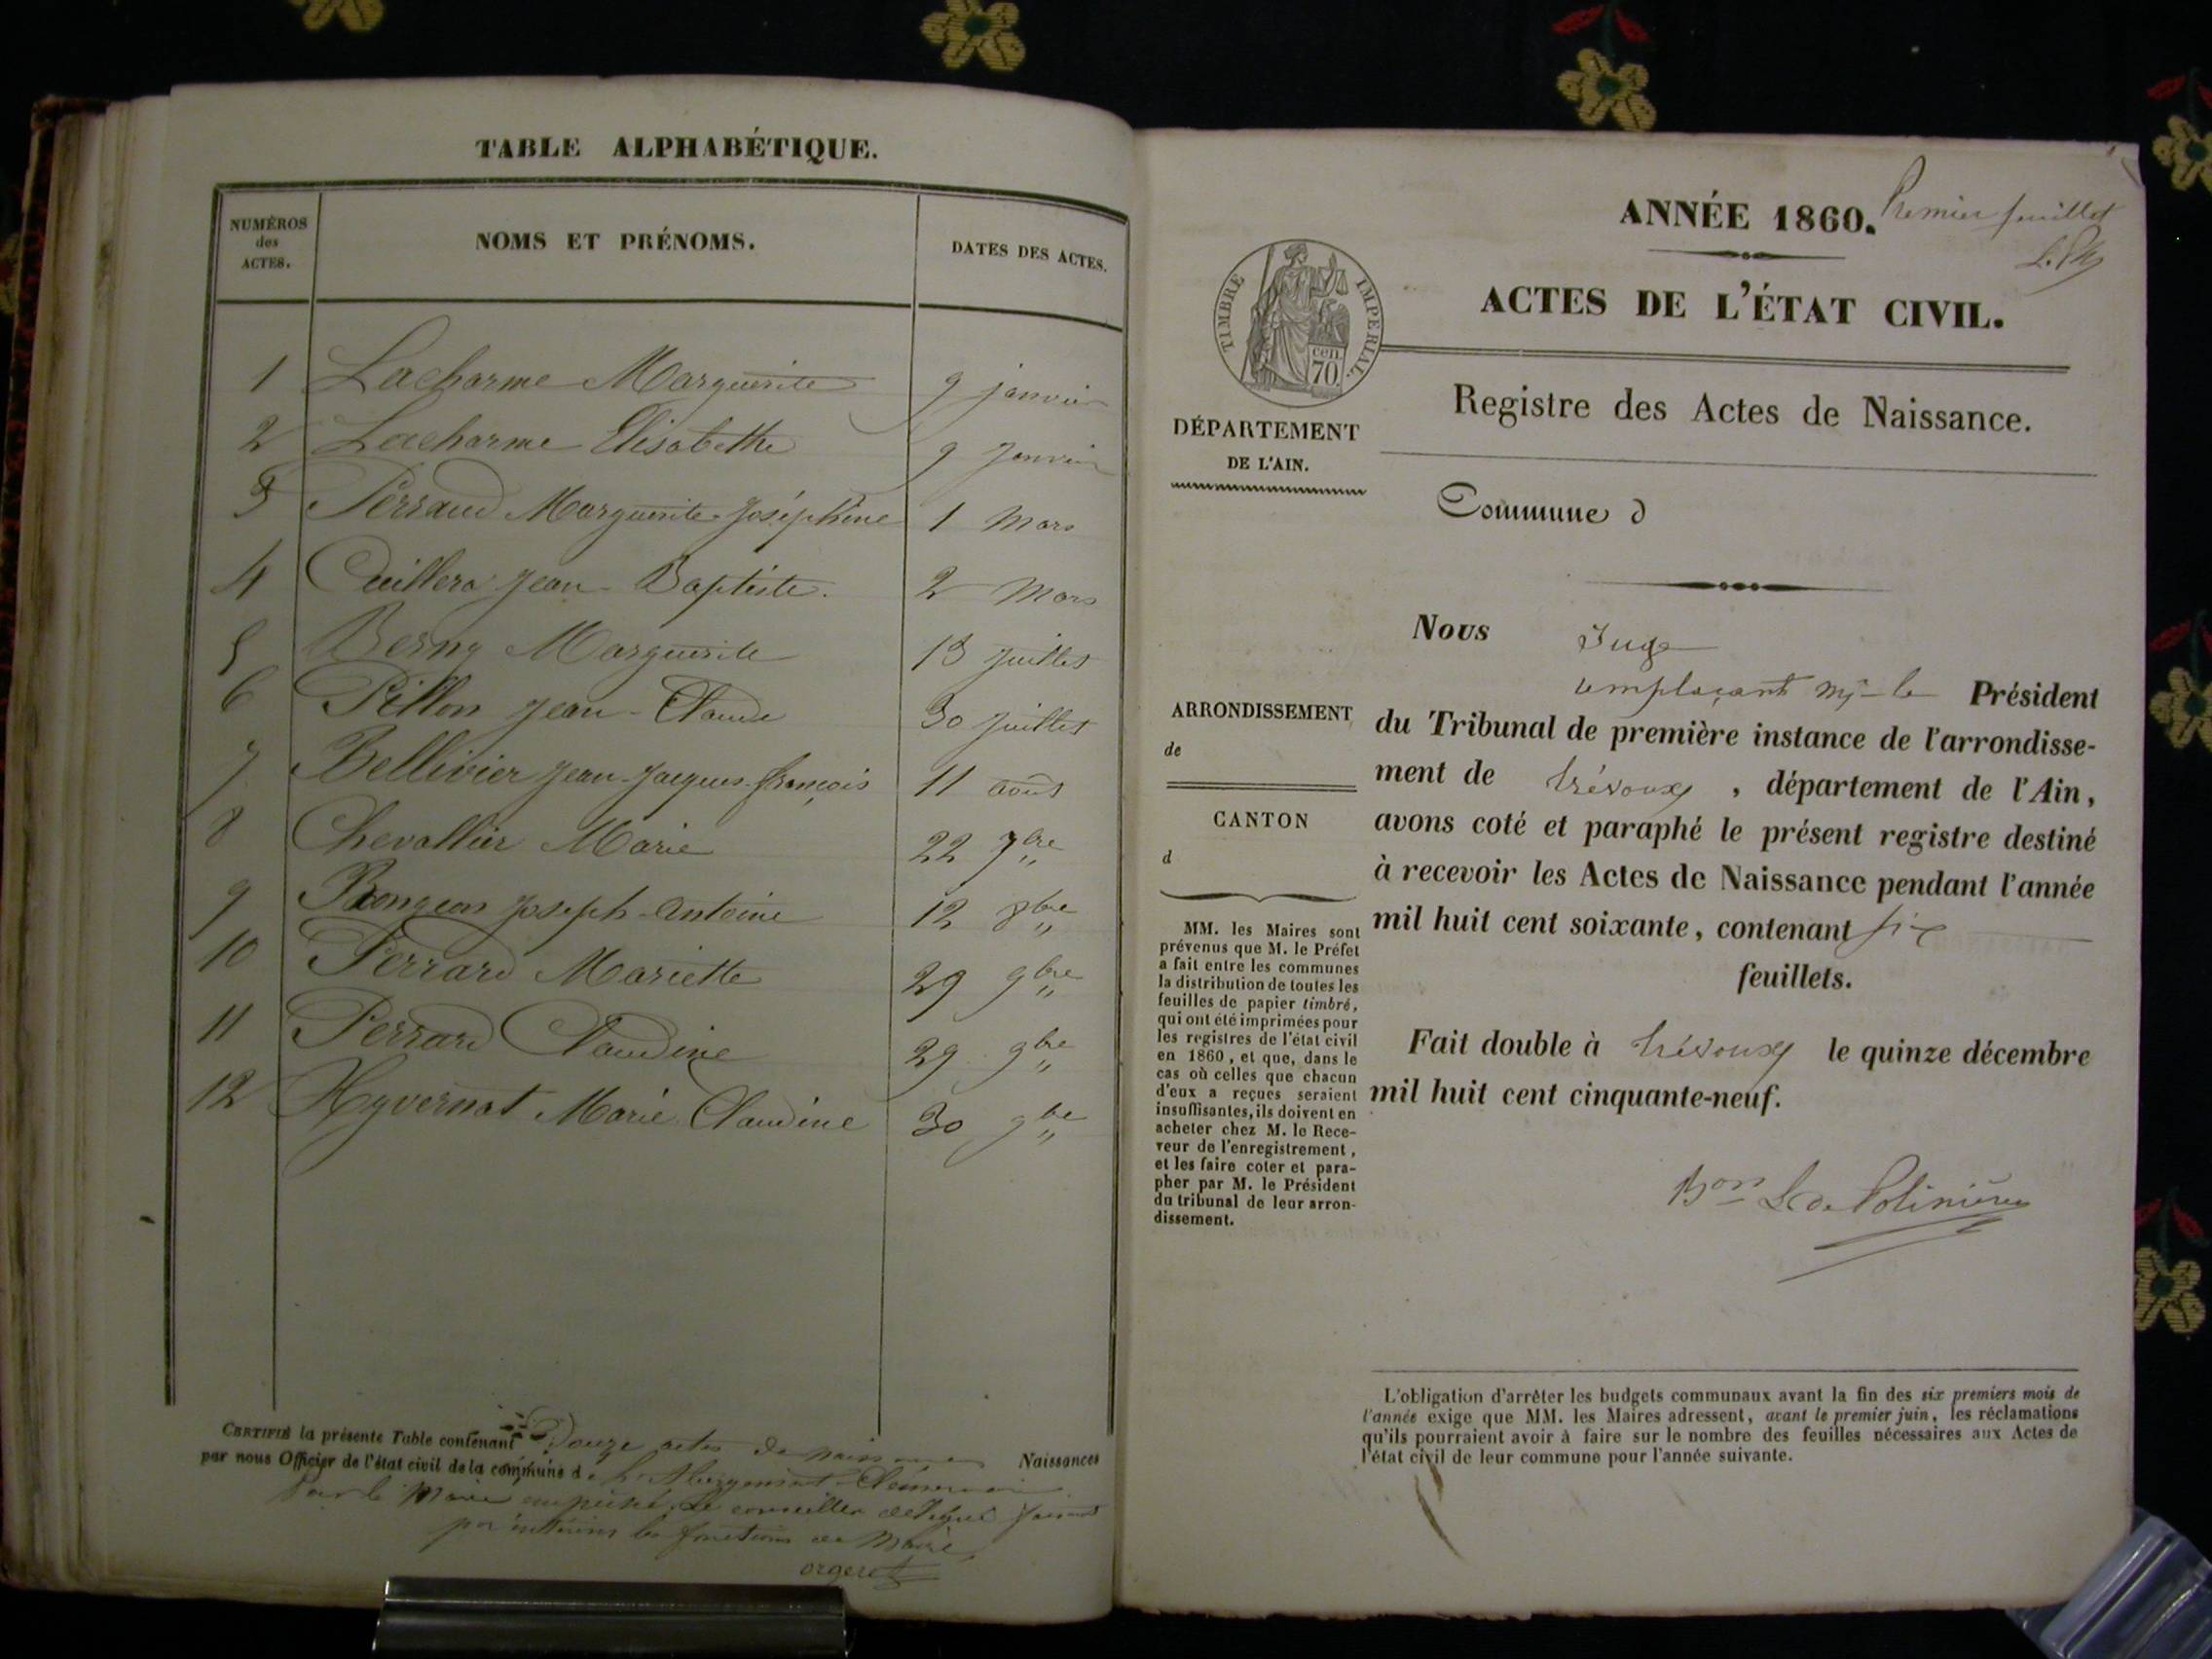 TABLE ALPHABÉTIQUE.
NUMÉROS
des
ACTES.
NOMS ET PRÉNOMS.
DATES DES ACTES.
1 Lacharme Marguerite 9 janvier
2 Lacharme Elisabethe 9 Janvier
3 Perraud Marguerite Joséphine 1 Mars
4 Cuillera Jean-Baptiste. 2 Mars
5 Berny Marguerite 13 Juillet
6 Pillon Jean-Claude 30 Juillet
7 Bellivier Jean-Jacques-françois 11 août
8 Chevallier Marie 22 7bre
9 Joseph-Antoine 12 8bre
10 Perrard Mariette 29 9bre
11 Perrard Claudine 29 9bre
12 Hyvernat Marie Claudine 30 9bre
CERTIFIÉ la présente Table contenant Douze actes de naissances Naissances
par nous Officier de l'état civil de la commune de
Pour le Maire empêché, Le conseiller délégué faisant
par intérim les fonctions de Maire,
orgeret
ANNÉE 1860.
Premier feuillet
ACTES DE L'ÉTAT CIVIL.
TIMBRE IMPERIAL.
cen.
70.
Registre des Actes de Naissance.
DÉPARTEMENT
DE L'AIN.
Commune d
Nous Juge
remplaçant Mr le Président
du Tribunal de première instance de l'arrondisse-
ment de trévoux, département de l'Ain,
avons coté et paraphé le présent registre destiné
à recevoir les Actes de Naissance pendant l'année
mil huit cent soixante, contenant six
feuillets.
Fait double à trévoux le quinze décembre
mil huit cent cinquante-neuf.
Bon L de Polinière
ARRONDISSEMENT
de
CANTON
d
MM. les Maires sont
prévenus que M. le Préfet
a fait entre les communes
la distribution de toutes les
feuilles de papier timbré,
qui ont été imprimées pour
les registres de l'état civil
en 1860, et que, dans le
cas où celles que chacun
d'eux a reçues seraient
insuffisantes, ils doivent en
acheter chez M. le Rece-
veur de l'enregistrement,
et les faire coter et para-
pher par M. le Président
du tribunal de leur arron-
dissement.
L'obligation d'arrêter les budgets communaux avant la fin des six premiers mois de
l'année exige que MM. les Maires adressent, avant le premier juin, les réclamations
qu'ils pourraient avoir à faire sur le nombre des feuilles nécessaires aux Actes de
l'état civil de leur commune pour l'année suivante.